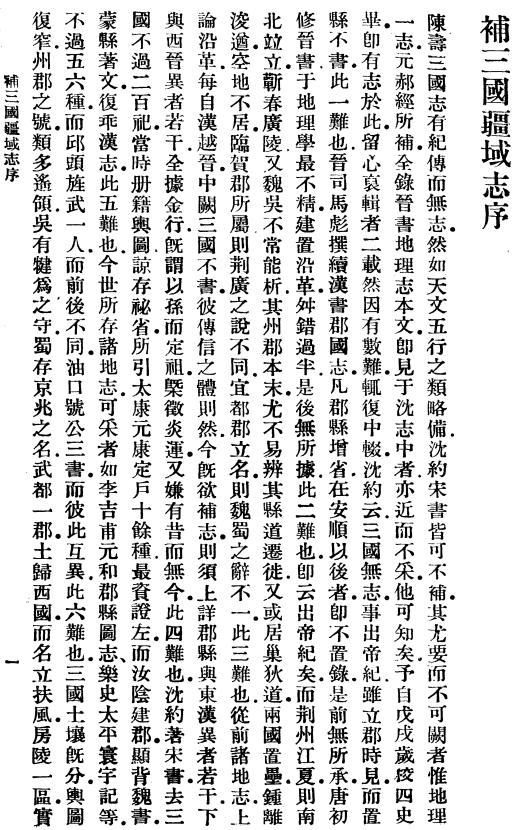 補三國疆域志序
陳壽三國志有紀傳而無志然如天文五行之類略備沈約宋書皆可不補其尤要而不可闕者惟地理
一志元郝經所補全錄晉書地理志本文卽見于沈志中者亦近而不采他可知矣予自戊戌歲校四史
畢卽有志於此留心裒輯者二載然因有數難輒復中輟沈約云三國無志事出帝紀雖立郡時見而置
縣不書此一難也晉司馬彪撰續漢書郡國志凡郡縣增省在安順以後者卽不置錄是前無所承唐初
修晉書于地理學最不精建置沿革舛錯過半是後無所據此二難也卽云出帝紀矣而荆州江夏則南
北竝立蘄春廣陵又魏吳不常能析其州郡本末尤不易辨其縣道遷徙又或居巢狄道兩國置壘鍾離
浚遒空地不居臨賀郡所屬則荆廣之說不同宜都郡立名則魏蜀之辭不一此三難也從前諸地志上
論沿革每自漢越晉中闕三國不書彼傳信之體則然今旣欲補志則須上詳郡縣與東漢異者若干下
與西晉異者若干全據金行旣謂以孫而定祖槩徵炎運又嫌有昔而無今此四難也沈約著宋書去三
國不過二百祀當時册籍輿圖諒存祕省所引太康元康定戶十餘種最資證左而汝陰建郡顯背魏書
蒙縣著文復乖漢志此五難也今世所存諸地志可采者如李吉甫元和郡縣圖志樂史太平寰宇記等
不過五六種而邱頭旌武一人而前後不同油口號公三書而彼此互異此六難也三國土壤旣分輿圖
復窄州郡之號類多遙領吳有犍爲之守蜀存京兆之名武都一郡土歸西國而名立扶風房陵一區實
補三國疆域志序
一